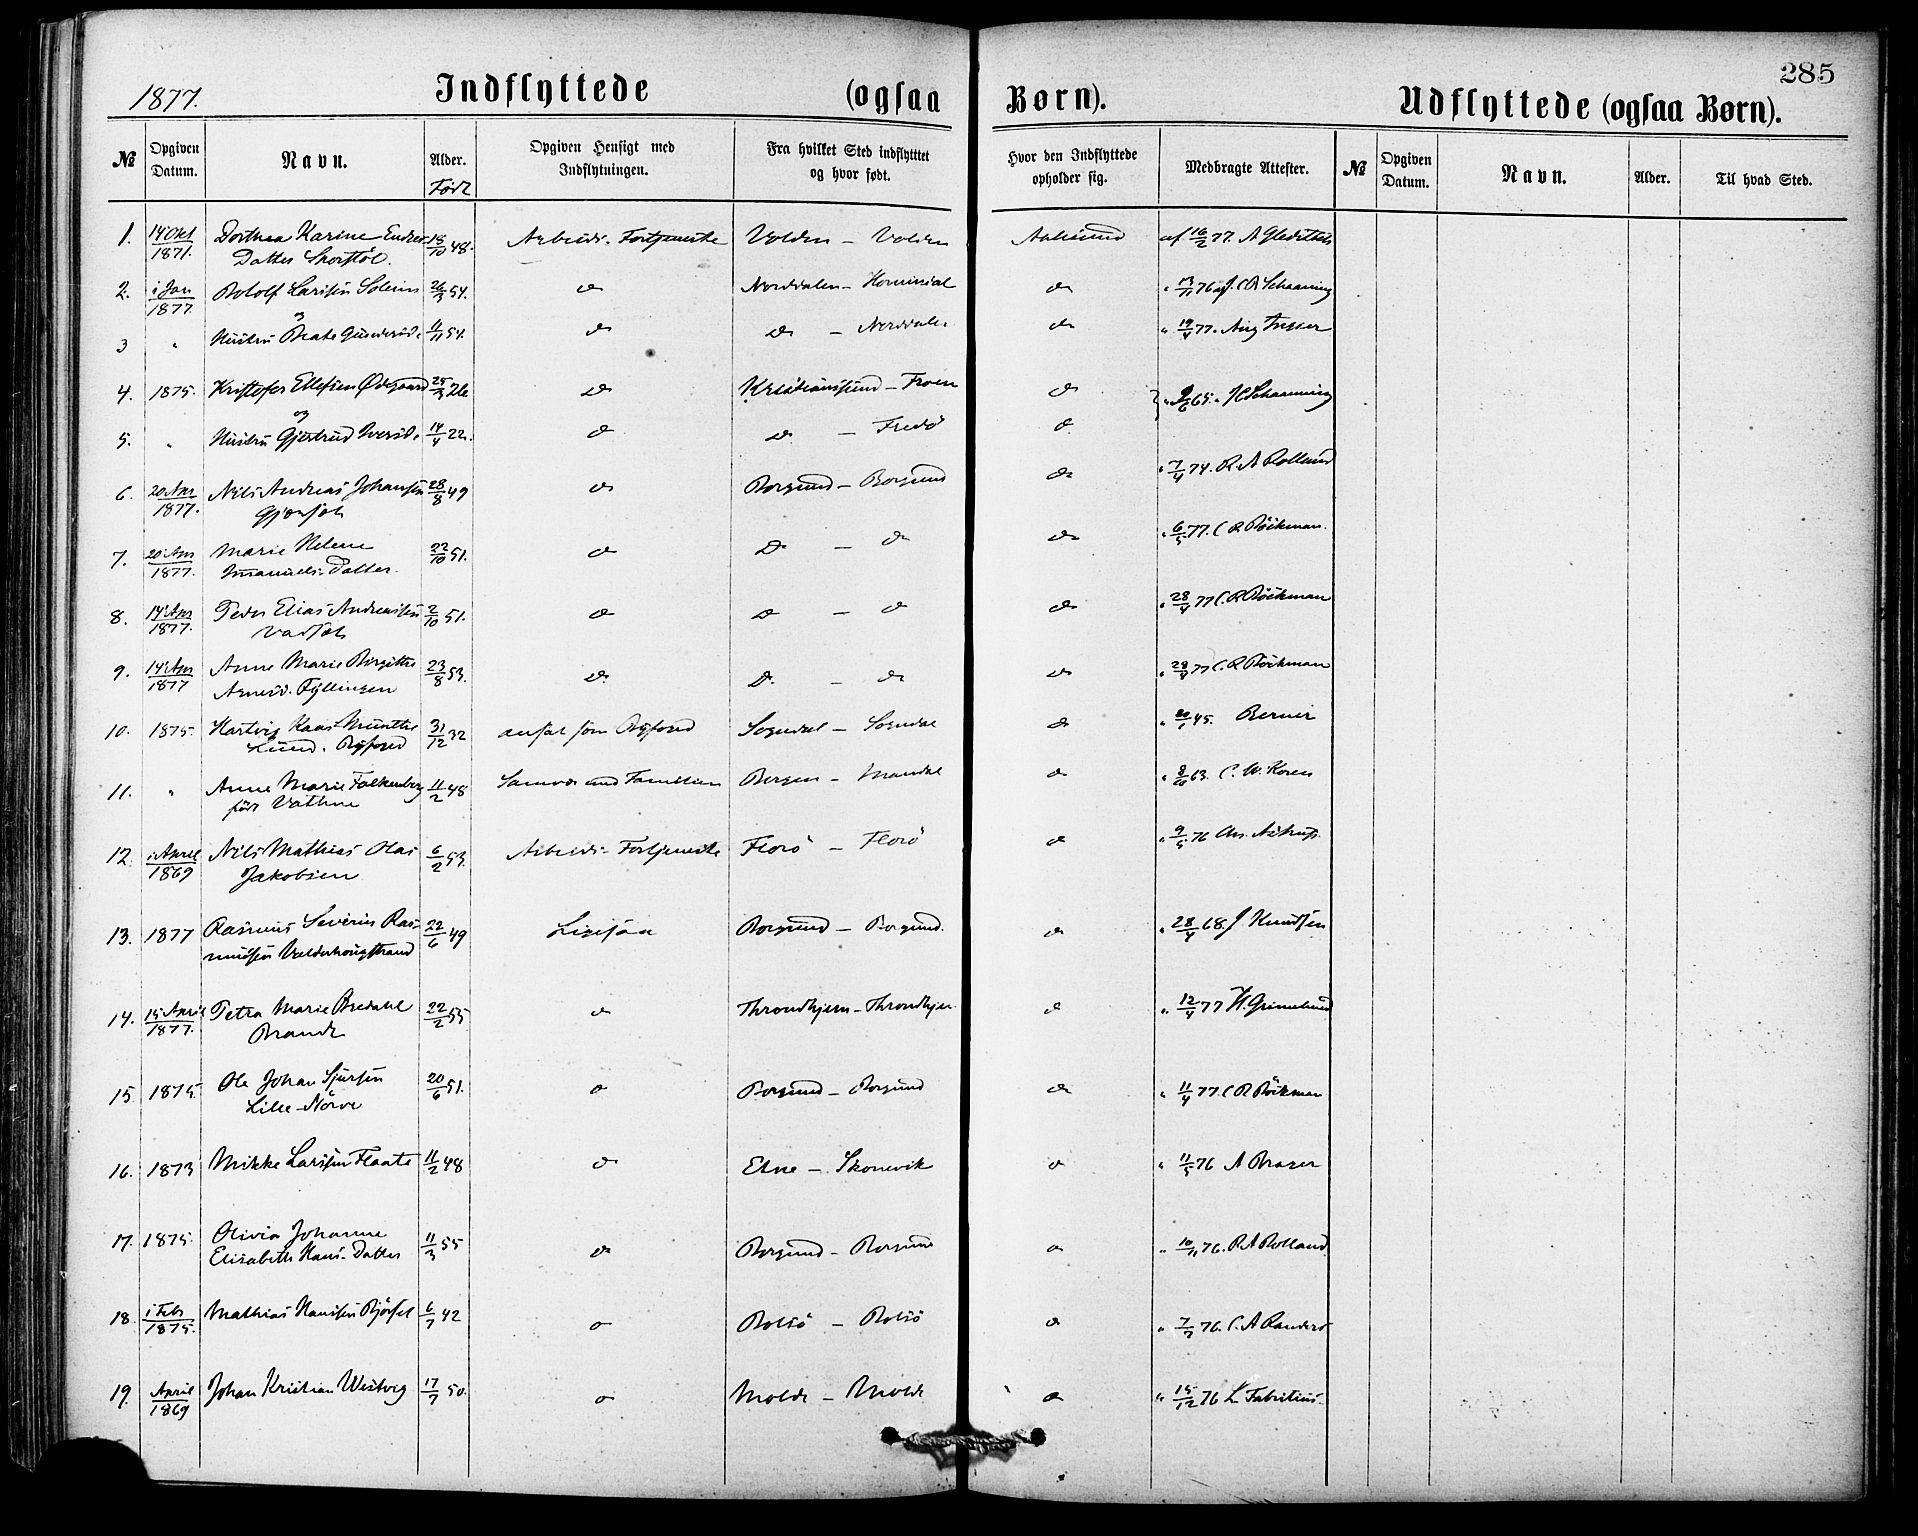 1877. Indflyttede (ogsaa Børn). Udflyttede (ogsaa Børn). 285
№ Opgiven Datum. Navn. Alder. Født Opgiven Hensigt med Indflytningen. Fra hvilket Sted indflytttet og hvor født. Hvor den Indflyttede opholder sig. Medbragte Attester. № Opgiven Datum. Navn. Alder. Til hvad Sted.
1. 14 Okt 1871. Dorthea Karine Endres- 18/10 48. Arbeids-Fortjeneste Volden – Volden Aalesund af 16/2 77. A Gleditsch
Datter
2. i Jan 1877. Larssen 26/3 54. do Norddalen – do 76 Schaaning
og
3 " Hustru Beate Gundersd. 11/11 54. do do – Norddalen do " 19/4 77.
4. 1875. Kristofer Ellefsen Ødegaard 25/3 26 do Kristianssund – do " 65. Schaanning
og
5. " Hustru Gjertrud Iversd. 14/4 22. do do – Fredö do
6. 20 Apr 1877. Nils Andreas Johansen 28/8 49 do Borgund – Borgund do " 7/4 74. R A Rolland
7. 20 Apr 1877. Marie Helene 22/10 51. do do – do do " 6/5 77. C R Böckman.
Imanuels-Datter.
8. 14 Apr 1877. Peder Elias Andreassen 2/10 51. do do – do do " 28/4 77 C. R Böckman
9. 14 Apr 1877 Anne Marie Birgitte 23/8 53. do do – do do " 28/4 77 C. R Böckman
Fyllingen
10. 1875. Hartvig Kaas Munthe 31/12 32 ansat som Byfoged Sogndal – Sogndal do 45. Berner
Lund. Byfoged
11. " Anne Marie Falkenberg 11/2 48 Familien Bergen – Mandal do 63. C. W. Koren
født Vathne
12. i April 1869 Nils Mathias Olai 6/2 53. Arbeids-Fortjeneste Florö – Florö do " 9/5 76 Astrup.
Jakobsen
13. 1877 Rasmus Severin Ras- 22/6 49 Ligesaa Borgund – Borgund. do " 28/4 68. J Knudsen
mussen Valderhougstrand
14. 15 April 1877. Petra Marie Bredahl 22/2 55 do Throndhjem – Throndhjem do " 12/4 77 H. Grimelund
Brandt
15. 1875. Ole Johan Sjursen 20/6 51. do Borgund – Borgund do " 11/4 77. C R Böckman
Lille-Nörve
16. 1873 Mikke Larssen Flaate 11/2 48 do Etne – Skonevik do " 11/5 76 A
17. 1875. Olivia Johanne 11/3 55 do Borgund – Borgund do " 10/11 76. R A Rolland
Elisabeth Hans-Datter
18. i Feb 1875. Mathias Hanssen 6/7 42 do Bolsö – Bolsö do " 7/7 76. C. A Randers
19. April 1869 Johan Kristian Westvig 17/7 50. do Molde – Molde do " 15/12 76 Fabritius.